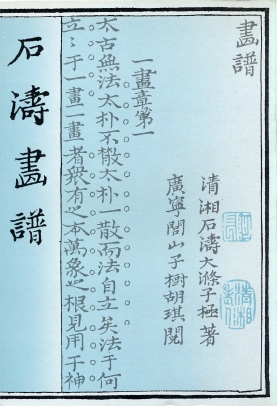 畫譜
清湘石濤大滌子極著
廣寧閭山子樹胡琪閱
一畫章第一
太古無法太朴不散太朴一散而法自立矣法于何
立立于一畫一畫者衆有之本萬象之根見用于神
石濤畫譜